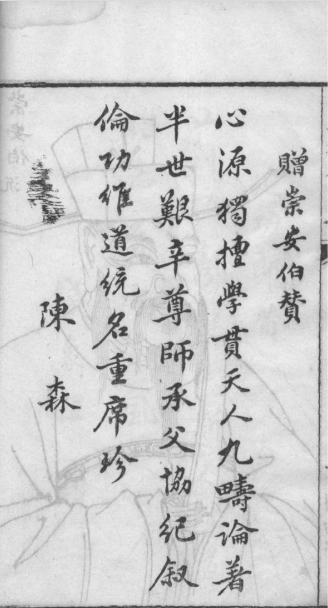 贈崇安伯赞
心源獨擅學貫天人九疇論著
半世艱辛尊師承父協紀叙
倫功維道統名重席珍
陳森